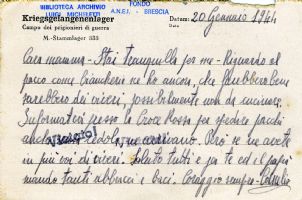 BIBLIOTECA ARCHIVIO
LUIGI MICHELETTI
FONDO
A.N.E.I. - BRESCIA
Kriegsgefangenenlager
Campo dei prigionieri di guerra
M.-Stammlager 333
Datum:
Data:
20 Gennaio 1944
Cara mamma - Stai tranquilla per me - Riguardo al
pacco come biancheria ne ho ancora, che
sarebbero dei viveri, possibilmente non da cuocere.
Informatevi presso la Croce Rossa per spedire pacchi
arrivano. Però se ne avete
in più voi di viveri. Saluto tutti e per te ed il papà
mando tanti abbracci e baci. Coraggio sempre -